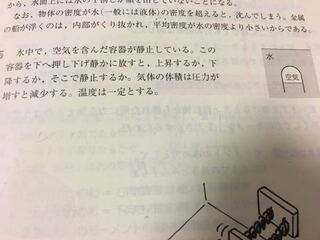 なお，物体の密度が水(一般には液体)の密度を超えると，沈んでしまう。金属
の船が浮くのは，内部がくり抜かれ，平均密度が水の密度より小さいからである。
水中で，空気を含んだ容器が静止している。この
容器を下へ押し下げ静かに放すと，上昇するか，下
降するか，そこで静止するか。気体の体積は圧力が
増すと減少する。温度は一定とする。
水
空気